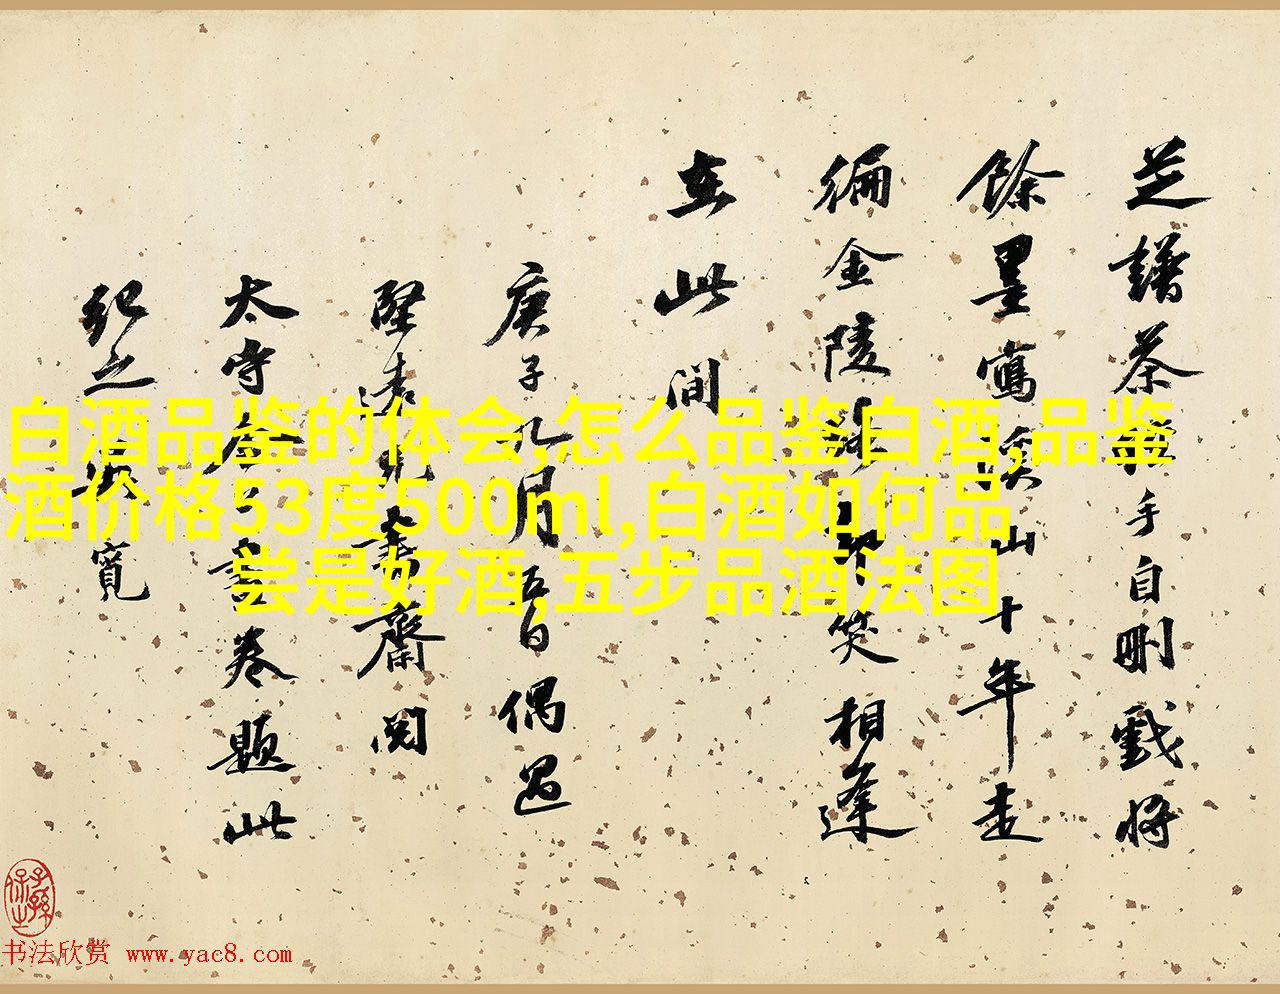 芝譜茶手自刪戲將
餘墨寫溪山十年走
徧金陵却笑相逢
在此間
庚子九月五日偶過
堅兄書齋閱
太守卷題此
紀之寬
白酒品鉴的体会,怎么品鉴白酒,品鉴
酒价格53度500ml,白酒如何品
尝是好酒,五步品酒法图
书法欣赏 www.yac8.com